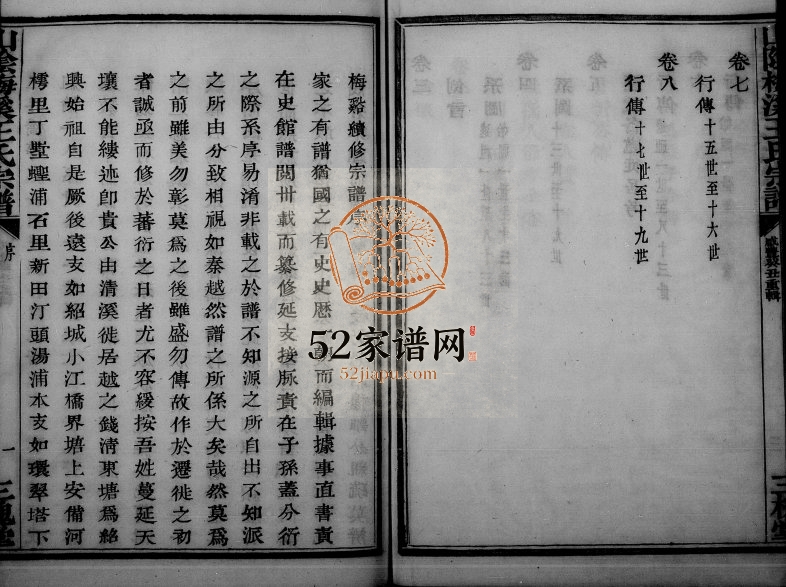 卷七
行傳十五世至十六世
卷八
行傳十七世至十九世
梅谿續修宗譜序
家之有譜猶國之有史史歷而編輯據事直書責
在史館譜閲卅載而纂修延支接脉責在子孫蓋分衍
之際系序易淆非載之於譜不知源之所自出不知派
之所由分致相視如秦越然譜之所係大矣哉然莫爲
之前雖美勿彰莫爲之後雖盛勿傳故作於遷徙之初
者誠亟而修於蕃衍之日者尤不容緩按吾姓蔓延天
壤不能縷述卽貴公由清溪徙居越之錢清東塘爲紹
興始祖自是厥後遠支如紹城小江橋界塘上安備河
樗里丁墅蟶浦石里新田汀頭湯浦本支如環翠塔下
山陰梅溪王氏宗譜
序
一
三槐堂
52家谱网
52jiapu.com